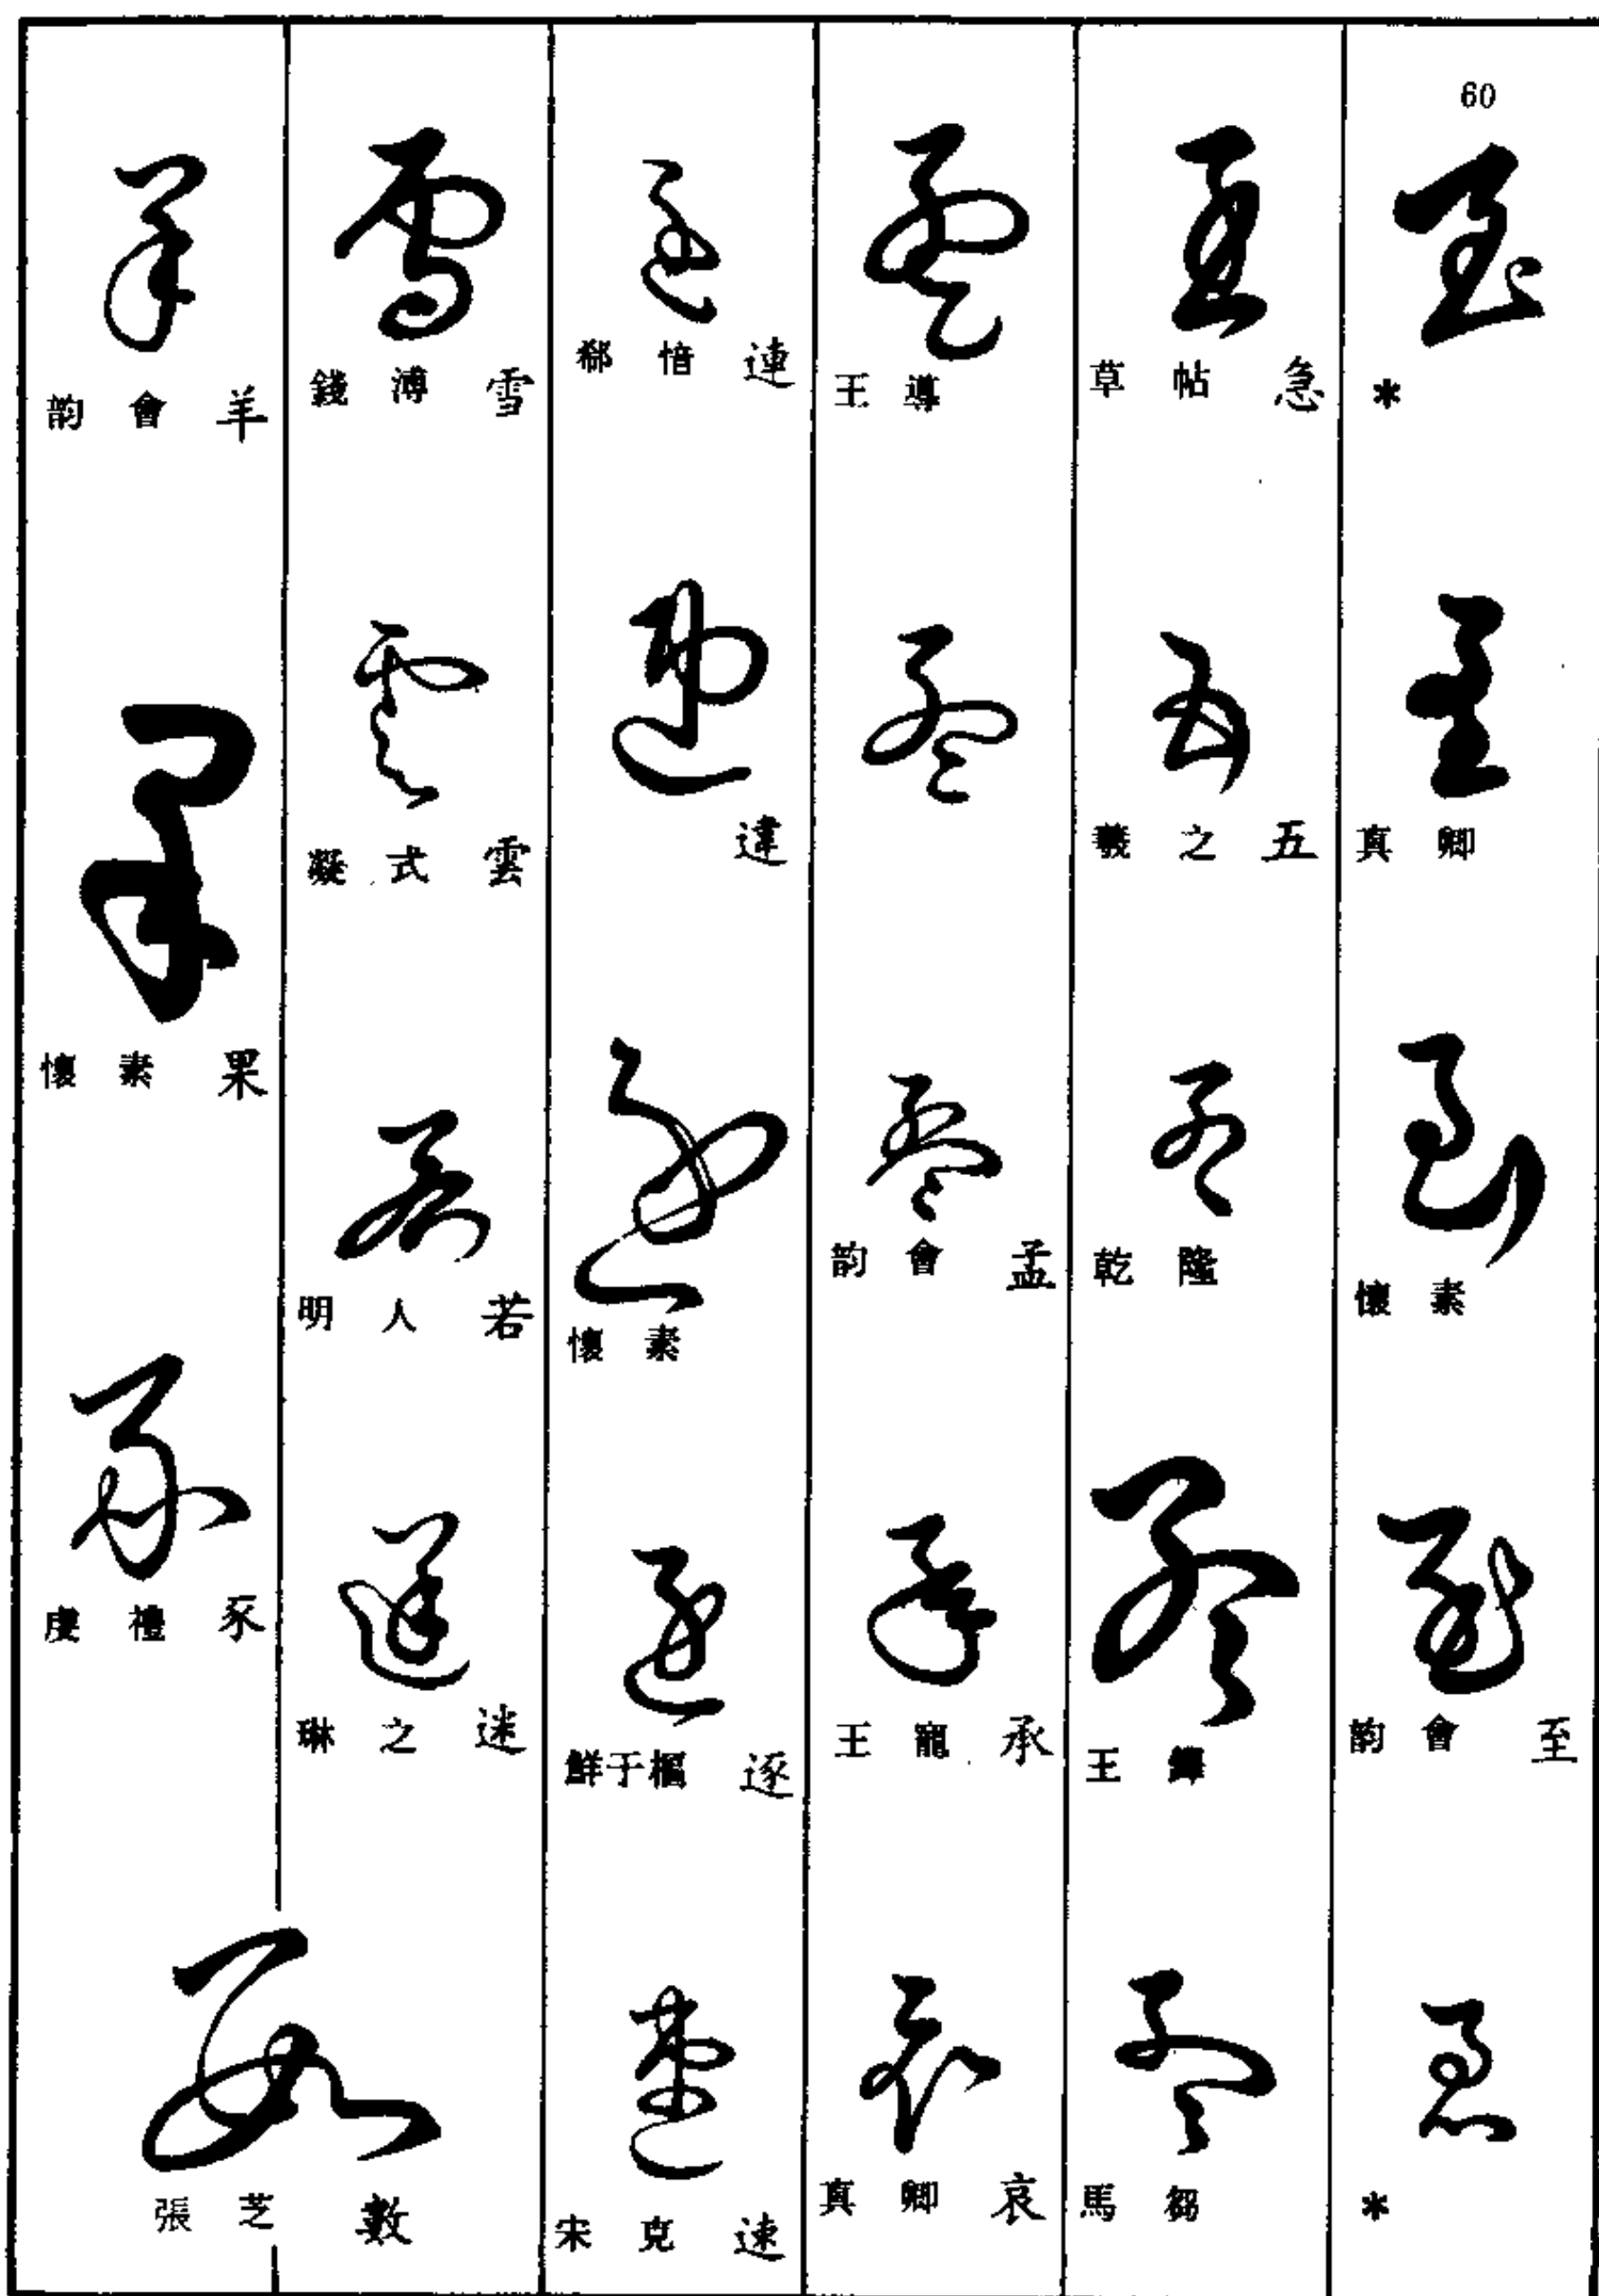 60
*
真卿
懷素
韵會 至
*
草帖 急
羲之 五
乾隆
王鐸
馬芻
王導
韵會 孟
王寵 承
真卿 哀
郗愔 連
違
懷素
鮮于樞 逐
宋克 速
錢溥 雪
凝式 雲
明人 若
琳之 迷
張芝 數
韵會 羊
懷素 果
虔禮 豕